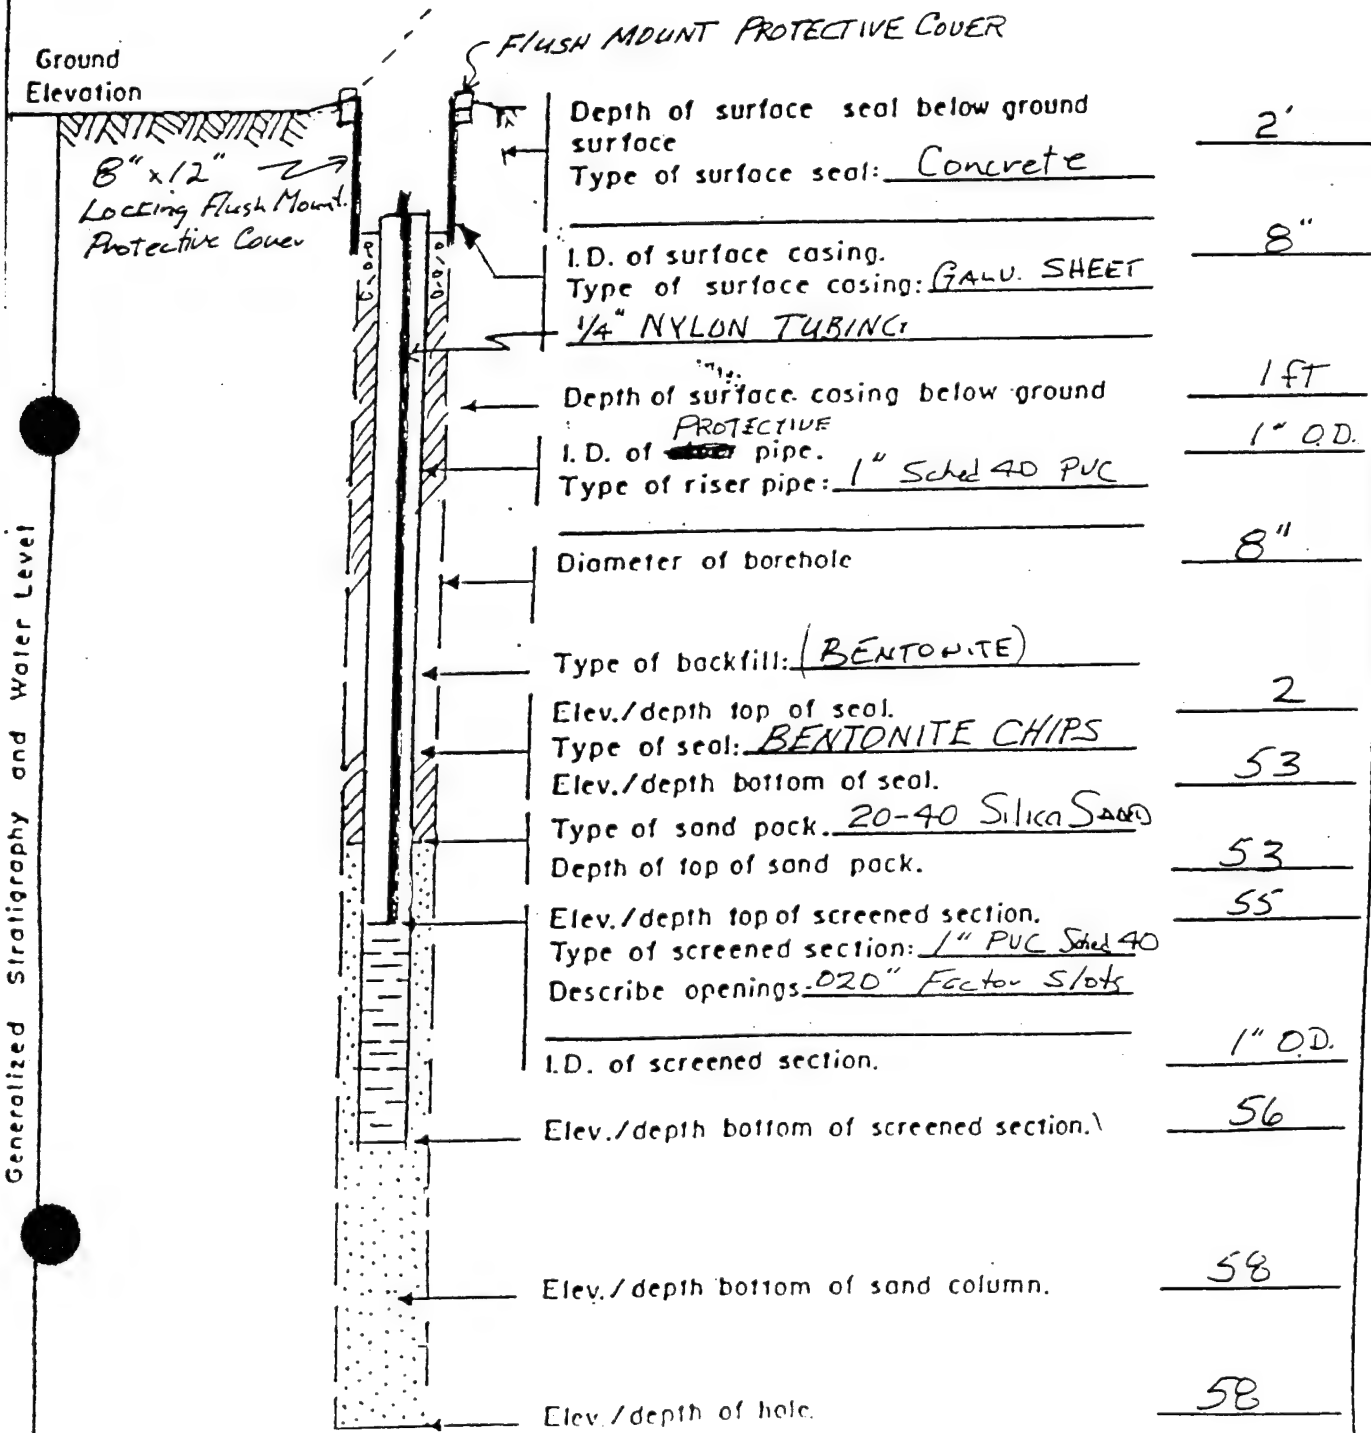 FLUSH MOUNT PROTECTIVE COVER
Ground
Elevation
8" x 12"
Locking Flush Mount
Protective Cover
Depth of surface seal below ground
surface 2'
Type of surface seal: Concrete
I.D. of surface casing. 8"
Type of surface casing: GALV. SHEET
1/4" NYLON TUBING
Depth of surface casing below ground 1 fT
PROTECTIVE
I.D. of pipe. 1" O.D.
Type of riser pipe: 1" Sched 40 PVC
Diameter of borehole 8"
Type of backfill: (BENTONITE)
Elev./depth top of seal. 2
Type of seal: BENTONITE CHIPS
Elev./depth bottom of seal. 53
Type of sand pack. 20-40 Silica SAND
Depth of top of sand pack. 53
Elev./depth top of screened section. 55
Type of screened section: 1" PVC Sched 40
Describe openings .020" Slots
I.D. of screened section. 1" O.D.
Elev./depth bottom of screened section. 56
Elev./depth bottom of sand column. 58
Elev./depth of hole. 58
Generalized Stratigraphy and Water Level